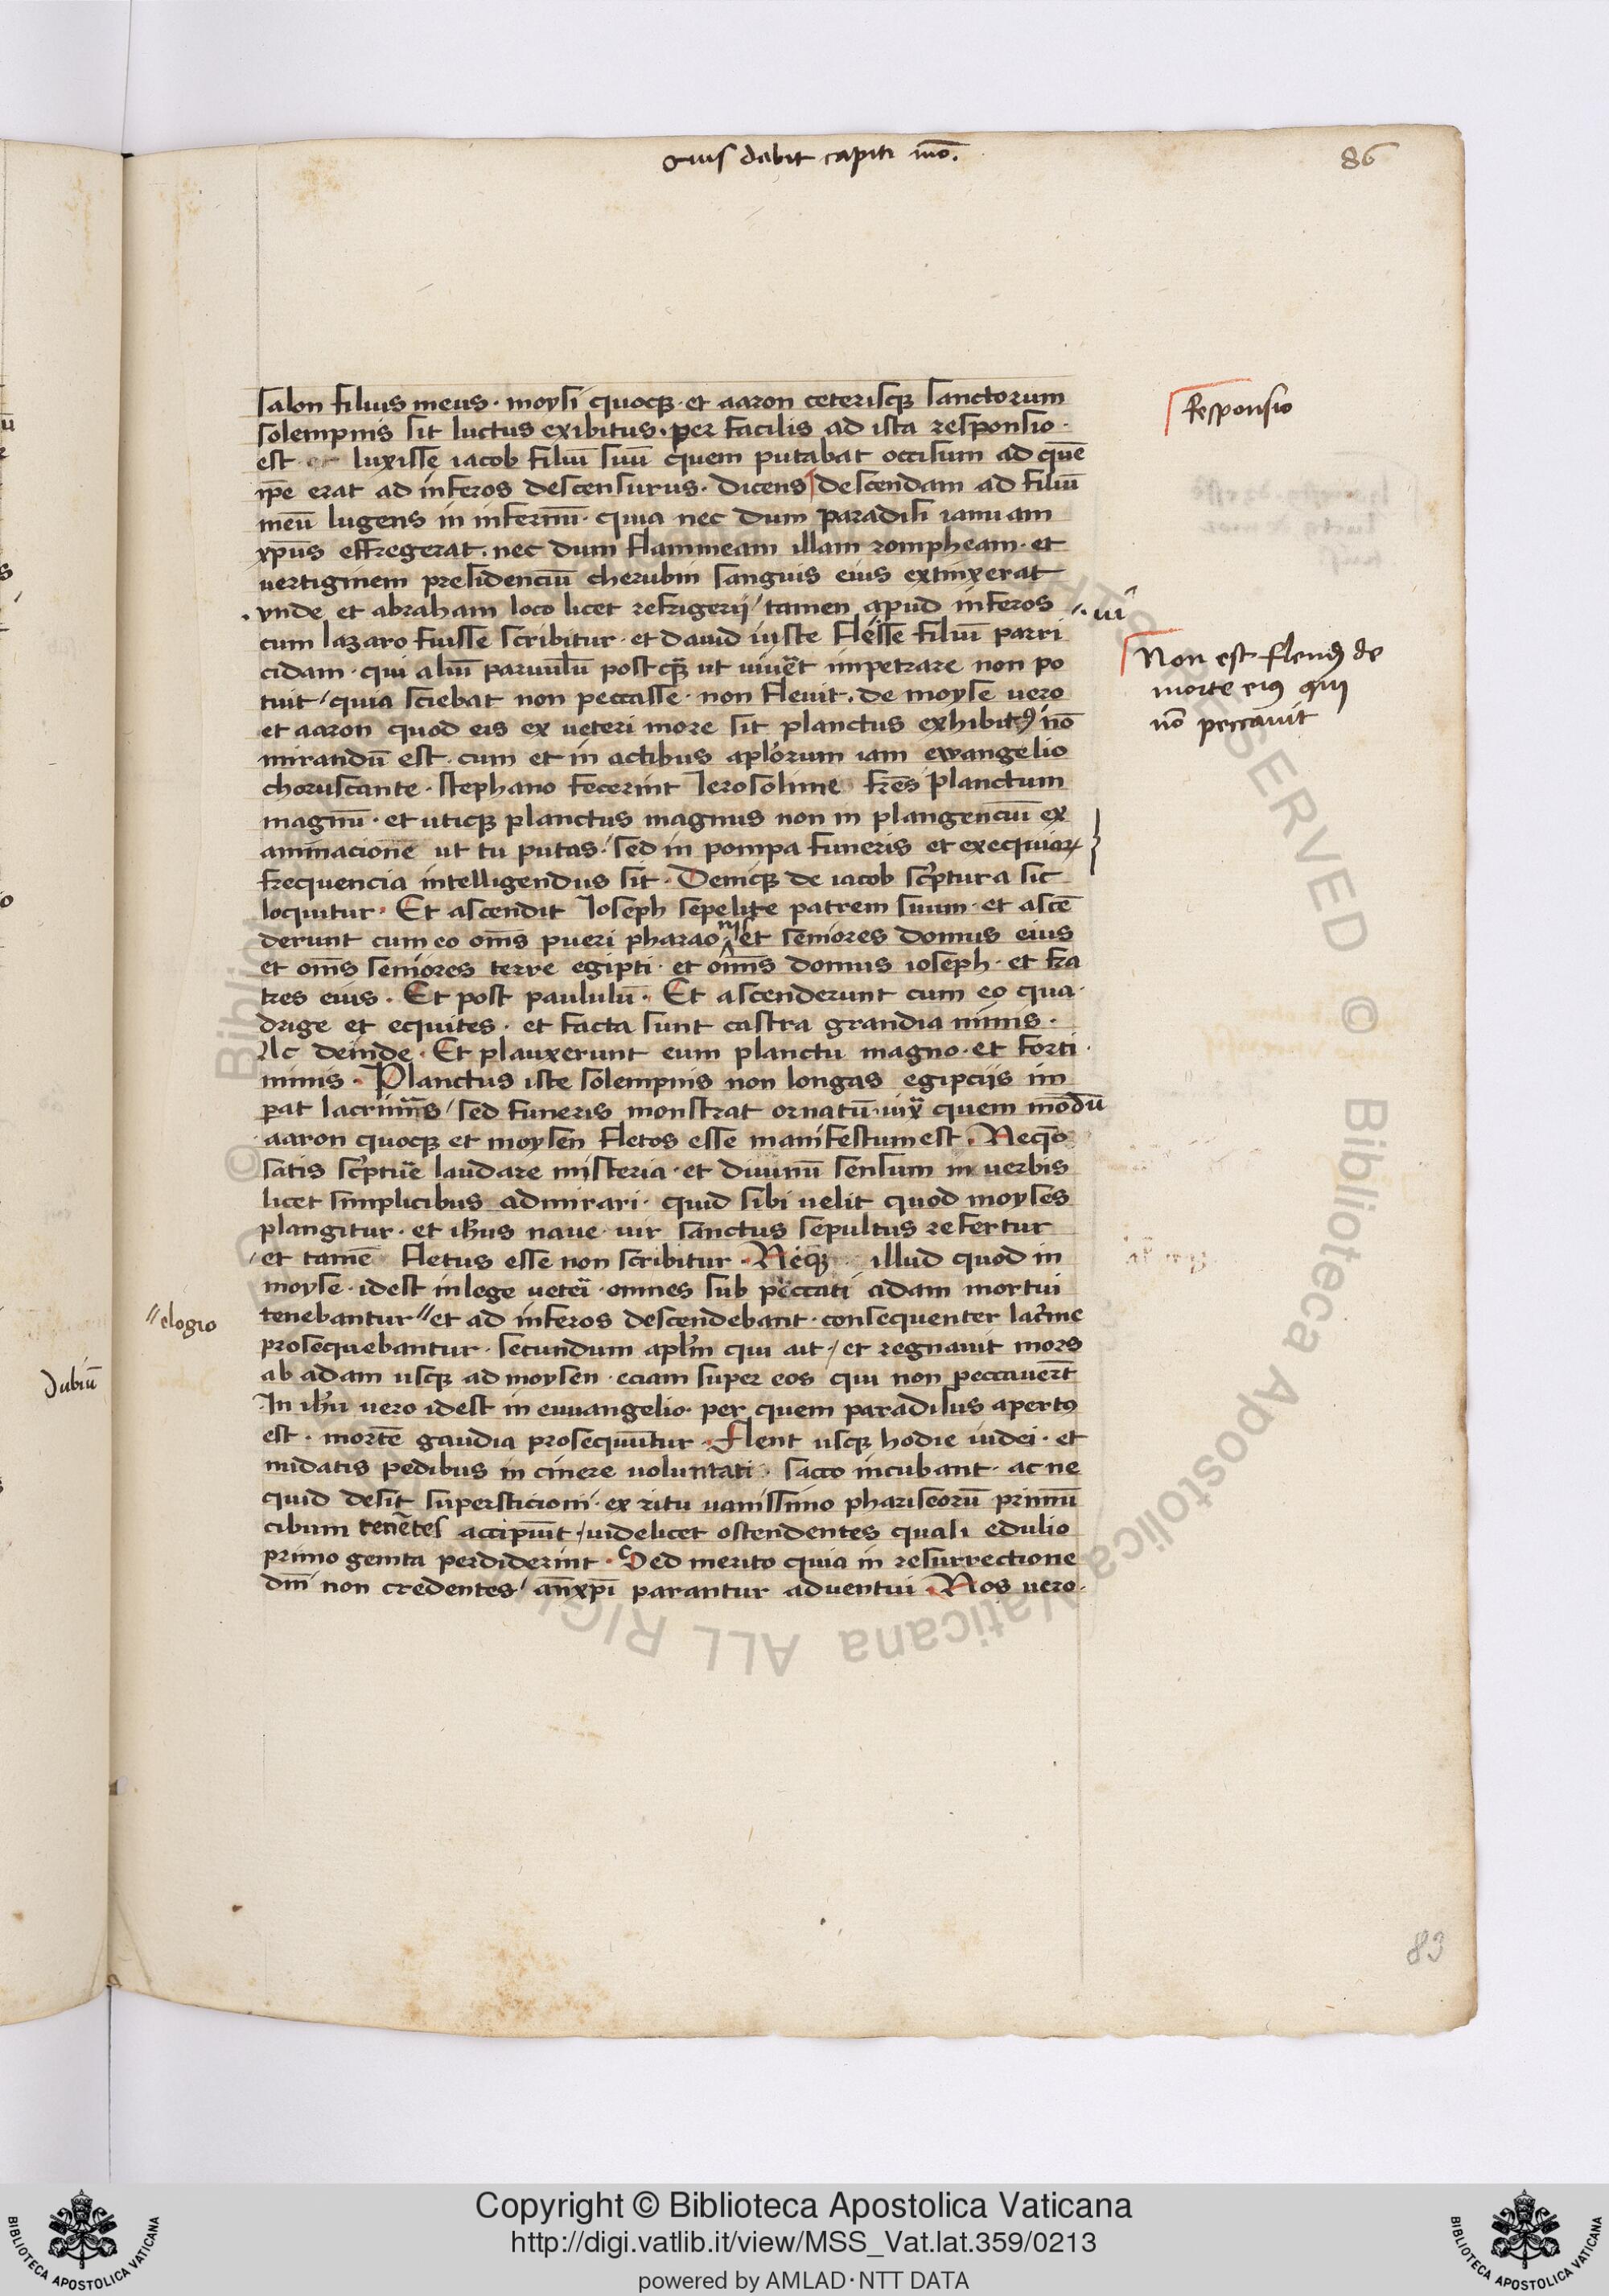 Quis dabit capiti mō.
86
salon filius meus · moysi quoqȝ · et aaron ceterisqȝ sanctorum
solempnis sit luctus exibitus · per facilis ad ista responsio ·
est luxisse iacob filiū suū quem putabat occisum ad quē
ip̄e erat ad inferos descensurus · dicens descendam ad filiū
meū lugens in infernū · quia nec dum paradisi ianuam
xp̄us effregerat · nec dum flammeam illam rompheam · et
vertiginem presidenciū cherubin sanguis eius extinxerat
· vnde et abraham loco licet refrigerij / tamen apud inferos
cum lazaro fuisse scribitur · et dauid iuste flesse filiū parri
cidam · qui aliū paruulū postqȝ ut uiuet impetrare non po
tuit / quia sciebat non peccasse · non fleuit · de moyse uero
et aaron quod eis ex ueteri more sit planctus exhibitꝰ nō
mirandū est · cum et in actibus apl'orum iam ewangelio
choruscante · stephano fecerint Ierosolime fr̄es planctum
magnū · et utiqȝ planctus magnus non in plangenciū ex
aminacione ut tu putas · sed in pompa funeris et exequiaꝝ
frequencia intelligendus sit · Deniqȝ de iacob sc̓ptura sic
loquitur · Et ascendit Ioseph sepelire patrem suum · et ascē
derunt cum eo om̄s pueri pharaonis et seniores domus eius
et om̄s seniores terre egipti · et om̄s domus ioseph · et fra
tres eius · Et post paululū · Et ascenderunt cum eo qua ·
drige et equites · et facta sunt castra grandia nimis ·
Ac deinde · Et planxerunt eum planctu magno · et forti ·
nimis · Planctus iste solempnis non longas egipcijs im
pat lacrimas / sed funeris monstrat ornatū · iux quem modū
aaron quoqȝ et moysen fletos esse manifestum est · Nequeo
satis sc̓pture laudare misteria · et diuinū sensum in uerbis
licet simplicibus admirari · quid sibi uelit quod moyses
plangitur · et ih̄us naue · uir sanctus sepultus refertur
/ et tamē fletus esse non scribitur · Neqȝ illud quod in
moyse · idest in lege ueteri · omnes sub peccati adam mortui
tenebantur // et ad inferos descendebant · consequenter lac̓me
prosequebantur · secundum apl'm qui ait / et regnauit mors
ab adam usqȝ ad moysen · eciam super eos qui non peccauer̄t
In ih̄u uero idest in euuangelio · per quem paradisus apertꝰ
est · mortē gaudia prosequūtur · Flent usqȝ hodie iudei · et
nudatis pedibus in cinere uoluntati · sacco incubant · ac ne
quid desit supersticioni · ex ritu uanissimo phariseorū primū
cibum tenētes accipiūt / uidelicet ostendentes quali edulio
primo genita perdiderint · Sed merito quia in resurrectione
dn̄i non credentes / an̄xp̄i parantur aduentui · Nos uero ·
Responsio
· ui
Non est flendꝰ de
morte eiꝰ qui
nō peccauit
// elogio
Dubiū
83
Copyright © Biblioteca Apostolica Vaticana
http://digi.vatlib.it/view/MSS_Vat.lat.359/0213
powered by AMLAD·NTT DATA
BIBLIOTECA APOSTOLICA VATICANA
BIBLIOTECA APOSTOLICA VATICANA